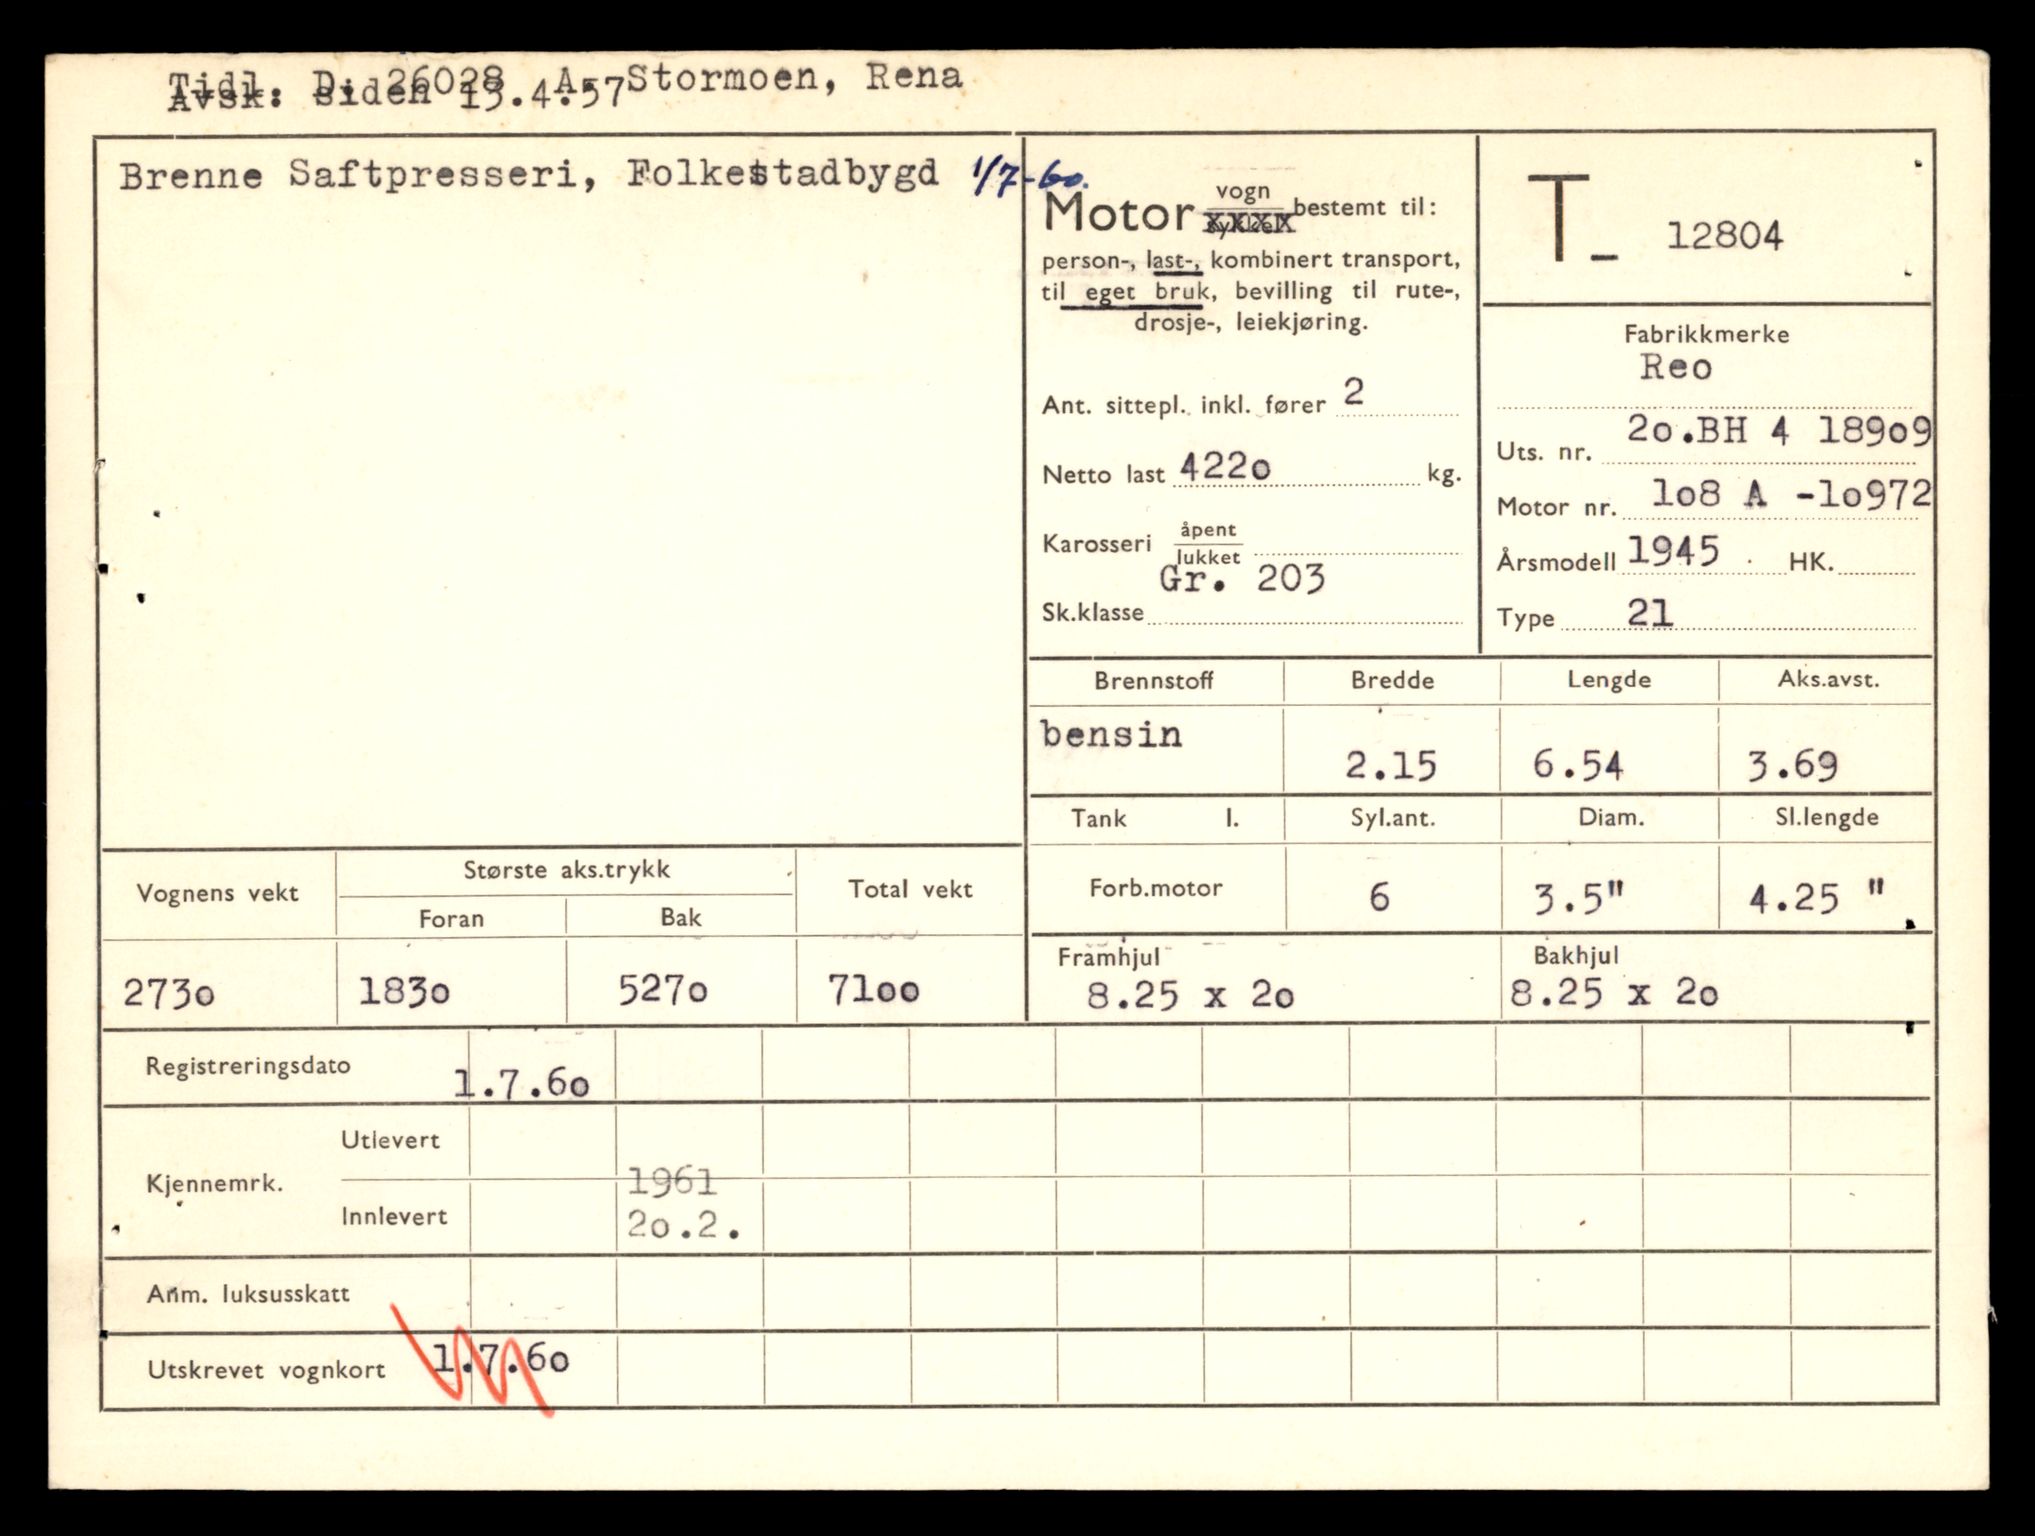 Tidl. D. 26028 A. Stormoen, Rena
Avsk: siden 13.4.57
Brenne Saftpresseri, Folkestadbygd 1/7-60.
Motor vogn bestemt til:
sykkel
person-, last-, kombinert transport,
til eget bruk, bevilling til rute-,
drosje-, leiekjøring.
T- 12804
Fabrikkmerke
Reo
Ant. sittepl. inkl. fører 2
Uts. nr. 2o.BH 4 189o9
Netto last 422o kg.
Motor nr. lo8 A -lo972
Karosseri åpent
lukket
Årsmodell 1945 HK.
Gr. 203
Sk.klasse
Type 21
Brennstoff Bredde Lengde Aks.avst.
bensin 2.15 6.54 3.69
Tank l. Syl.ant. Diam. Sl.lengde
Forb.motor 6 3.5" 4.25 "
Vognens vekt Største aks.trykk Total vekt
Foran Bak
273o 183o 527o 71oo
Framhjul Bakhjul
8.25 x 2o 8.25 x 2o
Registreringsdato 1.7.6o
Kjennemrk. Utlevert
1961
Innlevert 2o.2.
Anm. luksusskatt
Utskrevet vognkort 1.7.6o